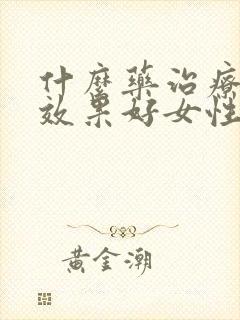 什麼藥治療
效果好女性
黃金潮